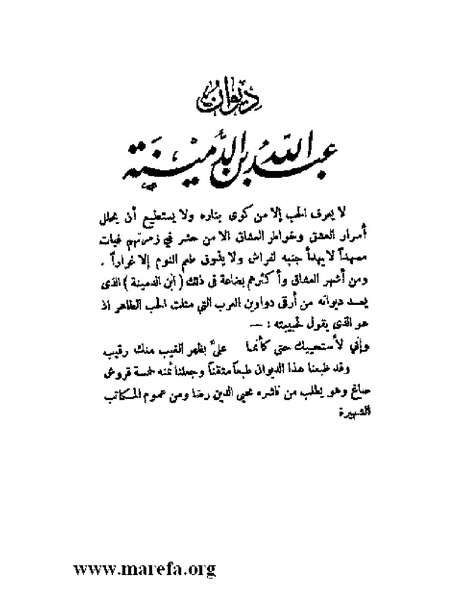 ديوان
عبد الله بن الدمينة
لا يعرف الحب إلا من كوى بناره ولا يستطيع أن يحلل
أسرار العشق وخواطر العشاق الا من حشر في زمرتهم فبات
مسهداً لا يهدأ جنبه لفراش ولا يذوق طعم النوم إلا غراراً .
ومن أشهر العشاق وأكثرهم بضاعة في ذلك ( ابن الدمينة ) الذى
يعد ديوانه من أرقى دواوين العرب التي مثلت الحب الطاهر اذ
هو الذى يقول لحبيبته : —
وإني لأستحييك حتى كأنما علىّ بظهر الغيب منك رقيب
وقد طبعنا هذا الديوان طبعاً متقناً وجعلنا ثمنه خمسة قروش
صاغ وهو يطلب من ناشره محيي الدين رضا ومن عموم المكاتب
الشهيرة
www.marefa.org